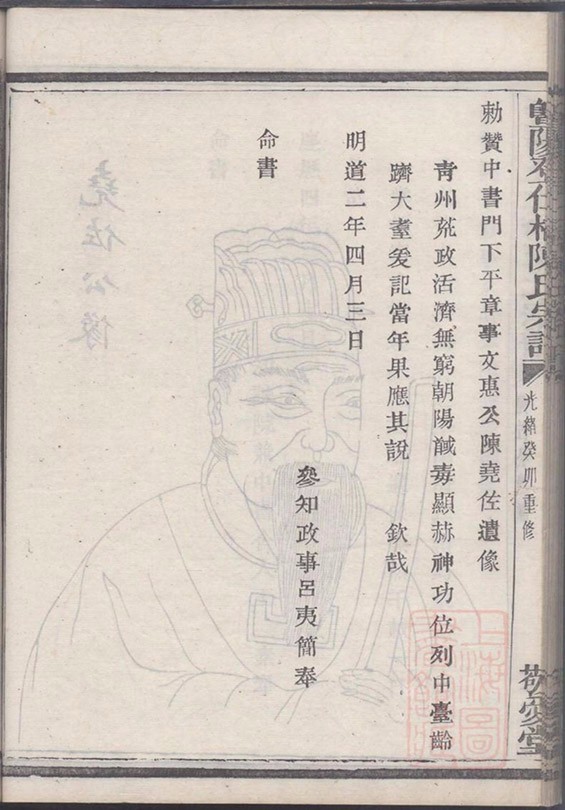 陳氏宗譜
光緒癸卯重修
敬愛堂
勅贊中書門下平章事文惠公陳堯佐遺像
青州兖政活濟無窮朝陽馘毒顯赫神功位列中臺齡
躋大耋爰記當年果應其說 欽哉
明道二年四月三日
參知政事呂夷簡奉
命書
堯佐公像
上海圖